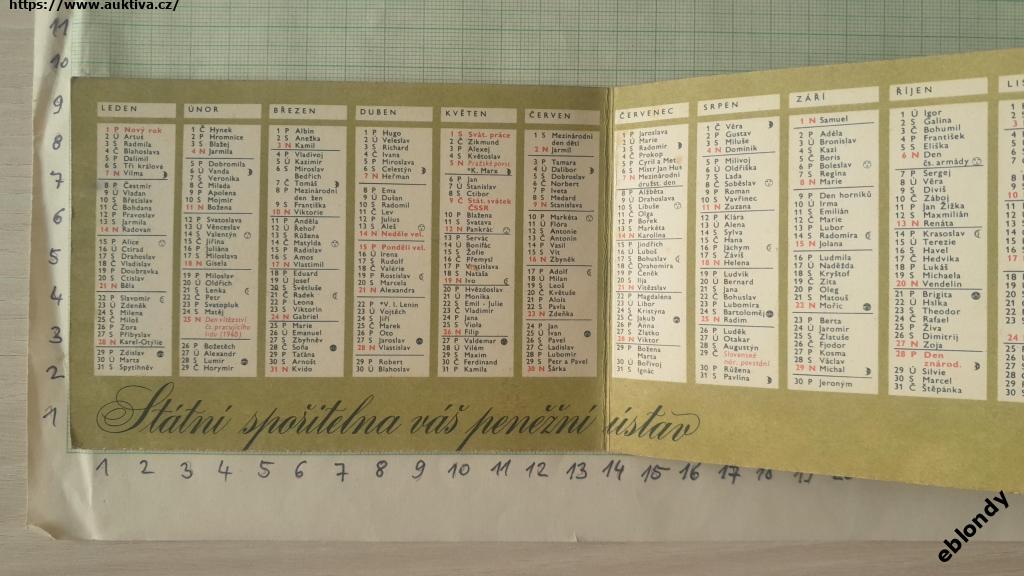 https://www.auktiva.cz/
LEDEN
1 P Nový rok
2 Ú Artuš
3 S Radmila
4 Č Blahoslava
5 P Dalimil
6 S Tři králové
7 N Vilma
8 P Čestmír
9 Ú Vladan
10 S Břetislav
11 Č Bohdana
12 P Pravoslav
13 S Jarmila
14 N Radovan
15 P Alice
16 Ú Ctirad
17 S Drahoslav
18 Č Vladislav
19 P Doubravka
20 S Ctislav
21 N Běla
22 P Slavomír
23 Ú Zdeněk
24 S Milena
25 Č Miloš
26 P Zora
27 S Přibyslav
28 N Karel-Otýlie
29 P Zdislav
30 Ú Marta
31 S Spytihněv
ÚNOR
1 Č Hynek
2 P Hromnice
3 S Blažej
4 N Jarmila
5 P Dobromila
6 Ú Vanda
7 S Veronika
8 Č Milada
9 P Apolena
10 S Mojmír
11 N Božena
12 P Svatoslava
13 Ú Věnceslav
14 S Valentýn
15 Č Jiřina
16 P Juliána
17 S Miloslava
18 N Gisela
19 P Miloslav
20 Ú Oldřich
21 S Lenka
22 Č Petr
23 P Svatopluk
24 S Matěj
25 N Den vítězství
čs. pracujícího
lidu (1948)
26 P Božetěch
27 Ú Alexandr
28 S Lumír
29 Č Horymír
BŘEZEN
1 P Albín
2 S Anežka
3 N Kamil
4 P Vladivoj
5 Ú Kazimír
6 S Miroslav
Bedřich
7 Č Tomáš
8 P Mezinárodní
den žen
9 S Františka
10 N Viktorie
11 P Anděla
12 Ú Řehoř
13 S Růžena
14 Č Matylda
15 P Radislav
16 S Amos
17 N Vlastimil
18 P Eduard
19 Ú Josef
20 S Světluše
21 Č Radek
22 P Leona
23 S Viktorin
24 N Gabriel
25 P Marie
26 Ú Emanuel
27 S Zbyhněv
28 Č Soňa
29 P Taťána
30 S Arnošt
31 N Kvido
DUBEN
1 P Hugo
2 Ú Veleslav
3 S Richard
4 Č Ivana
5 P Miroslava
6 S Celestýn
7 N Heřman
8 P Ema
9 Ú Dušan
10 S Radomil
11 Č Lev
12 P Julius
13 S Aleš
14 N Neděle vel.
15 P Pondělí vel.
16 Ú Irena
17 S Rudolf
18 Č Valérie
19 P Rostislav
20 S Marcela
21 N Alexandra
22 P *V. I. Lenin
23 Ú Vojtěch
24 S Jiří
25 Č Marek
26 P Oto
27 S Jaroslav
28 N Vlastislav
29 P Robert
30 Ú Blahoslav
KVĚTEN
1 S Svát. práce
2 Č Zikmund
3 P Alexej
4 S Květoslav
5 N Pražské povst.
*K. Marx
6 P Jan
7 Ú Stanislav
8 S Ctibor
9 Č Stát. svátek
ČSSR
10 P Blažena
11 S Svatava
12 N Pankrác
13 P Servác
14 Ú Bonifác
15 S Žofie
16 Č Přemysl
17 P Vratislava
18 S Nataša
19 N Ivo
20 P Hvězdoslav
21 Ú Monika
22 S Emil - Julie
23 Č Vladimír
24 P Jana
25 S Viola
26 N Filip
27 P Valdemar
28 Ú Vilém
29 S Maxim
30 Č Ferdinand
31 P Kamila
ČERVEN
1 S Mezinárodní
den dětí
2 N Jarmil
3 P Tamara
4 Ú Dalibor
5 S Dobroslav
6 Č Norbert
7 P Iveta
8 S Medard
9 N Stanislava
10 P Markéta
11 Ú Flóra
12 S Antonie
13 Č Antonín
14 P Vasil
15 S Vít
16 N Zbyněk
17 P Adolf
18 Ú Milan
19 S Leoš
20 Č Květuše
21 P Alois
22 S Pavla
23 N Zdeňka
24 P Jan
25 Ú Ivan
26 S Pavel
27 Č Ladislav
28 P Lubomír
29 S Petr a Pavel
30 N Šárka
ČERVENEC
1 P Jaroslava
2 Ú Marie
3 S Radomír
4 Č Prokop
5 P Cyril a Met.
6 S Mistr Jan Hus
7 N Mezinárodní
družst. den
8 P Alžběta
9 Ú Drahoslava
10 S Libuše
11 Č Olga
12 P Bořek
13 S Markéta
14 N Karolína
15 P Jindřich
16 Ú Luboš
17 S Bohuslav
18 Č Drahomíra
19 P Čeněk
20 S Ilja
21 N Vítězslav
22 P Magdaléna
23 Ú Libor
24 S Kristýna
25 Č Jakub
26 P Anna
27 S Zlatko
28 N Viktor
29 P Božena
Marta
30 Ú Bořivoj
31 S Ignác
SRPEN
1 Č Věra
2 P Gustav
3 S Miluše
4 N Dominik
5 P Milivoj
6 Ú Oldřiška
7 S Lada
8 Č Soběslav
9 P Roman
10 S Vavřinec
11 N Zuzana
12 P Klára
13 Ú Alena
14 S Sylva
15 Č Hana
16 P Jáchym
17 S Záviš
18 N Helena
19 P Ludvík
20 Ú Bernard
21 S Jana
22 Č Bohuslav
23 P Lubomíra
24 S Bartoloměj
25 N Radim
26 P Luděk
27 Ú Otakar
28 S Augustýn
29 Č Slovenské
nár. povstání
30 P Růžena
31 S Pavlína
ZÁŘÍ
1 N Samuel
2 P Adéla
3 Ú Bronislav
4 S Kazi
5 Č Boris
6 P Boleslav
7 S Regina
8 N Marie
9 P Den horníků
10 Ú Irma
11 S Emilián
12 Č Marie
13 P Lubor
14 S Radomíra
15 N Jolana
16 P Ludmila
17 Ú Naděžda
18 S Kryštof
19 Č Zita
20 P Oleg
21 S Matouš
22 N Mořic
23 P Berta
24 Ú Jaromír
25 S Zlatuše
26 Č Fjodor
27 P Kosma
28 S Václav
29 N Michal
30 P Jeroným
ŘÍJEN
1 Ú Igor
2 S Galina
3 Č Bohumil
4 P František
5 S Eliška
6 N Den
čs. armády
7 P Sergej
8 Ú Věra
9 S Diviš
10 Č Záboj
11 P Jan Žižka
12 S Maxmilián
13 N Renáta
14 P Krasoslav
15 Ú Terezie
16 S Havel
17 Č Hedvika
18 P Lukáš
19 S Michaela
20 N Vendelín
21 P Brigita
22 Ú Halka
23 S Theodor
24 Č Rafael
25 P Živa
26 S Dimitrij
27 N Zoja
28 P Den
znárod.
29 Ú Silvie
30 S Marcel
31 Č Štěpánka
LIS
Státní spořitelna váš peněžní ústav
11
10
9
8
7
6
5
4
3
2
1
1 2 3 4 5 6 7 8 9 10 11 12 13 14 15 16 17 18 19
eblondy